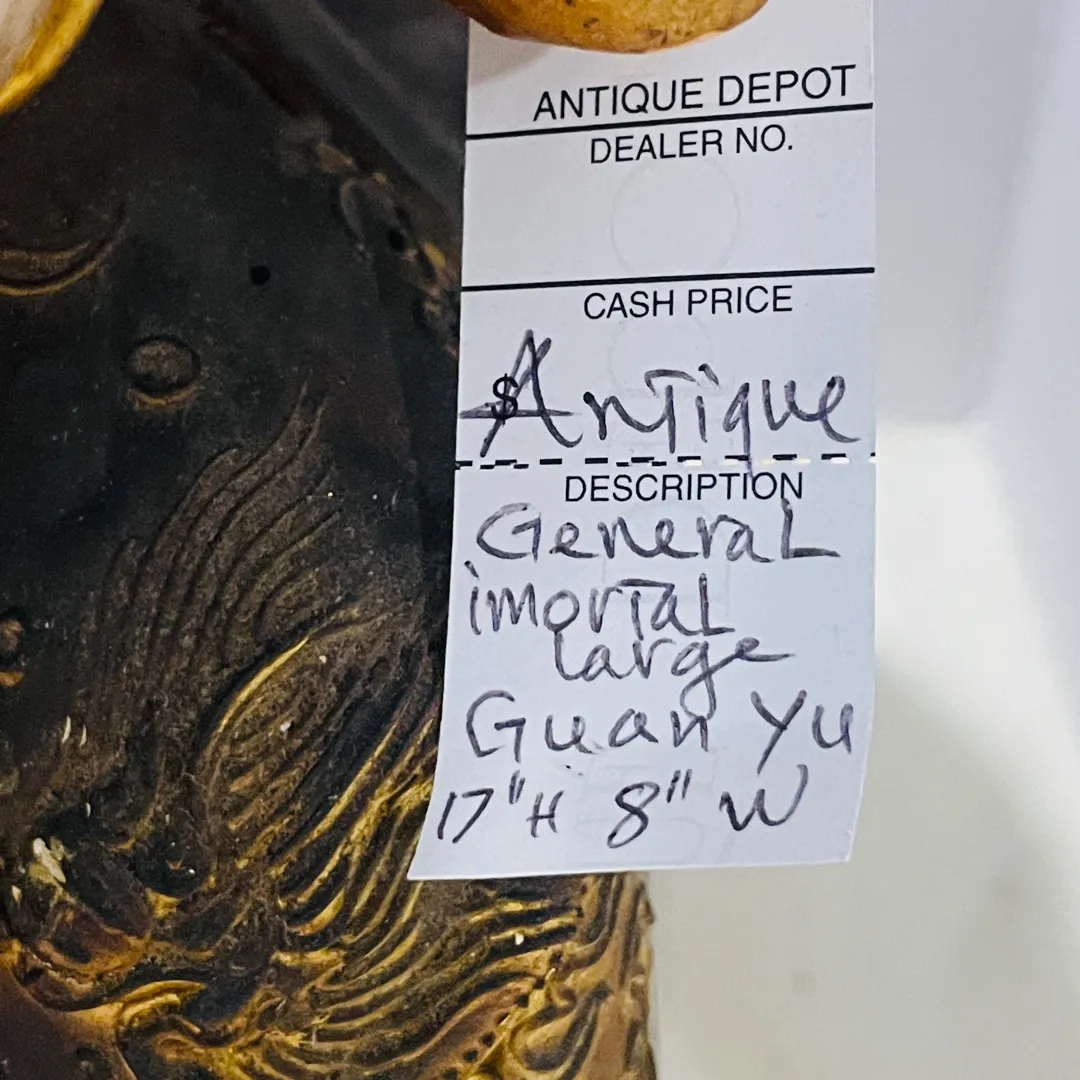 ANTIQUE DEPOT
DEALER NO.
CASH PRICE
$ Antique
DESCRIPTION
General
imortal
large
Guan Yu
17"H 8" W